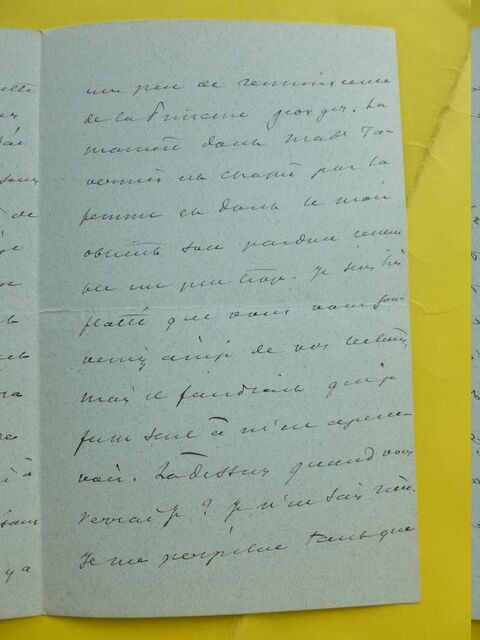 un peu de reminiscence
de la Princesse Georges. La
manière dont made Ta-
vernier est chassé par la
femme et dont le mari
obtient son pardon ressem
ble un peu trop. Je suis très
flatté que vous vous sou-
veniez ainsi de vos lectures,
mais il faudrait que je
fusse seul à m'en aperce-
voir. Là dessus quand vous
verrai je? Je n'en sais rien.
Je me perpétue tant que
elle
ai
sous
de
à
ya